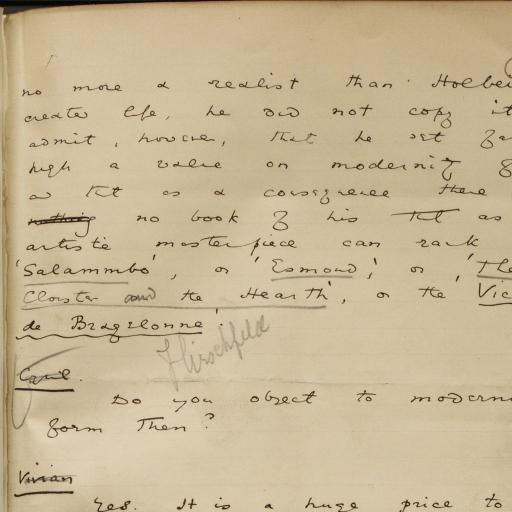 no more a realist than Holbei
create life, he did not copy it
admit, however, that he set fa
high a value on modernity of
so that as a consequence there
nothing no book of his that as
artistic masterpiece can rank
'Salammbo', or 'Esmond', or 'The
Cloister and the Hearth', or the 'Vic
de Bragelonne'.
Hirschfeld
Cyril.
Do you object to moderni
form then?
Vivian
Yes. It is a huge price to